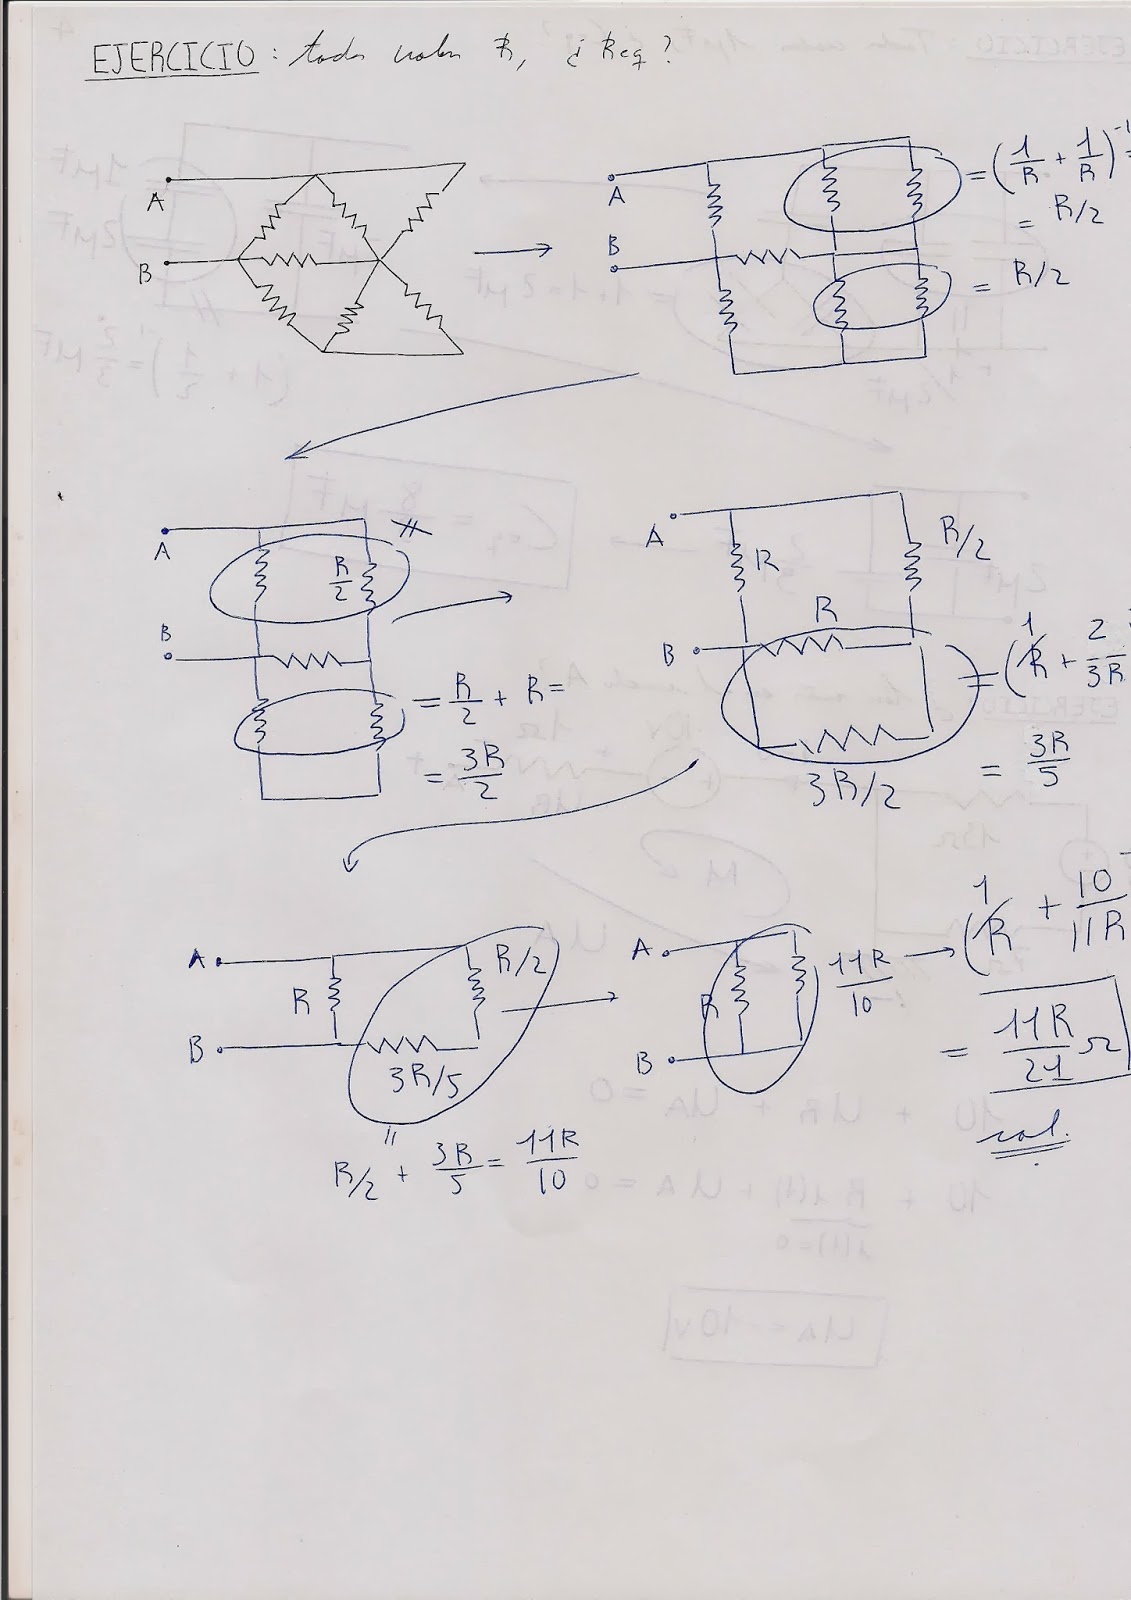 EJERCICIO : todos valen R, ¿ Req ?
A
B
A
B
= (1/R + 1/R)^-1
= R/2
= R/2
A
B
R/2
//
= R/2 + R =
= 3R/2
A
B
R
R/2
R
3R/2
= (1/R + 2/3R
= 3R/5
A
B
R
R/2
3R/5
R/2 + 3R/5 = 11R/10
A
B
R
11R/10
(1/R + 10/11R
= 11R/21 Ω
sol.